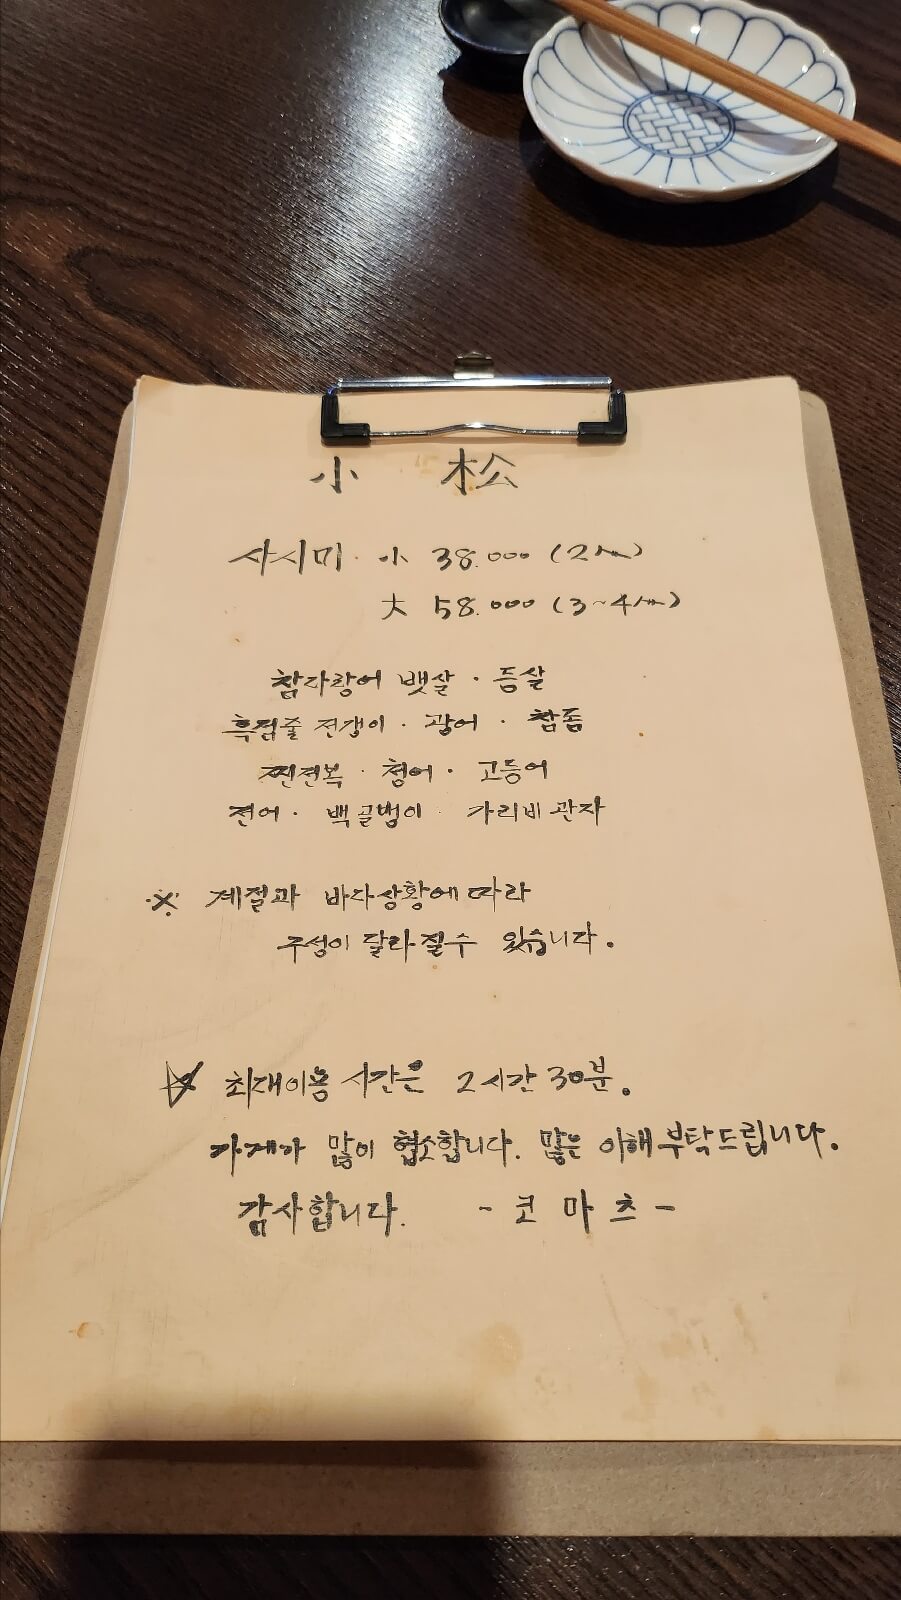 小 松
사시미. 小 38.000 (2人)
大 58.000 (3~4人)
참다랑어 뱃살 · 등살
흑점줄 전갱이 · 광어 · 참돔
찐전복 · 청어 · 고등어
전어 · 백골뱅이 · 가리비 관자
※ 계절과 바다상황에 따라
구성이 달라 질수 있습니다.
☆ 최대이용 시간은 2시간 30분.
가게가 많이 협소합니다. 많은 이해 부탁드립니다.
감사합니다. - 코 마 츠 -